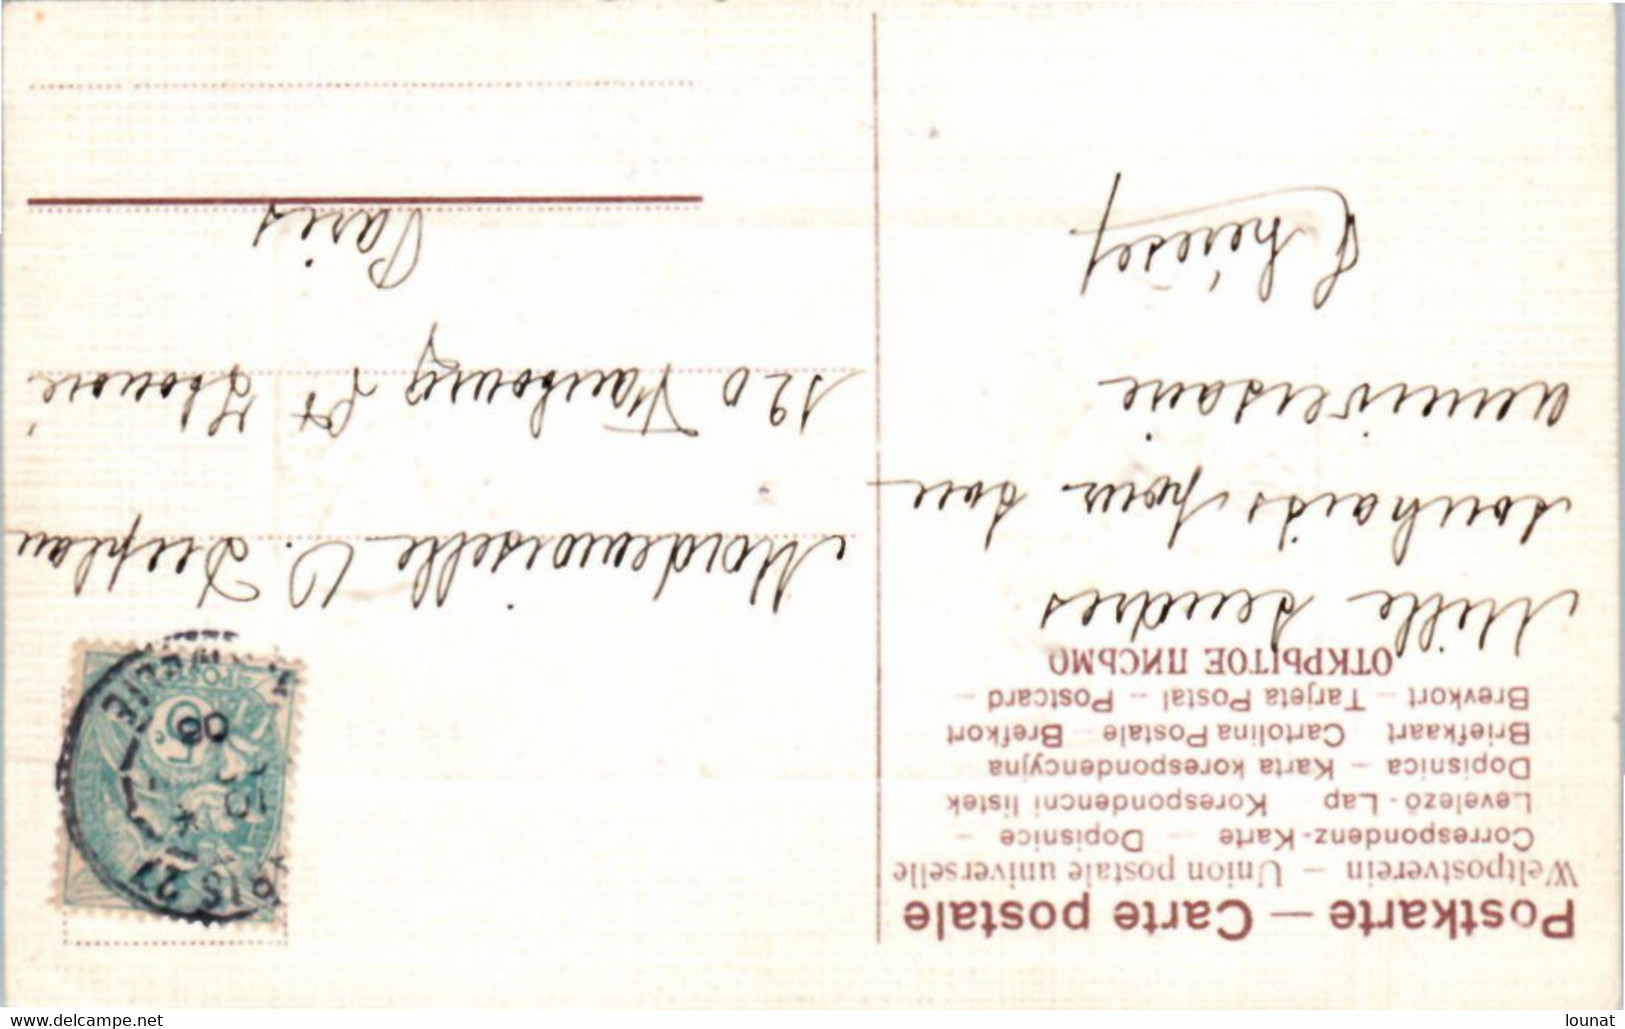 Postkarte — Carte postale
Weltpostverein — Union postale universelle
Correspondenz-Karte — Dopisnice —
Levelezö-Lap — Korespondencni listek
Dopisnica — Karta korespondencyjna
Briefkaart — Cartolina Postale — Brefkort
Brevkort — Tarjeta Postal — Postcard —
ОТКРЫТОЕ ПИСЬМО
Mille tendres
souhaits pour ton
anniversaire
Thérèse
Mademoiselle
120 Faubourg St Honoré
Paris
www.delcampe.net
lounat